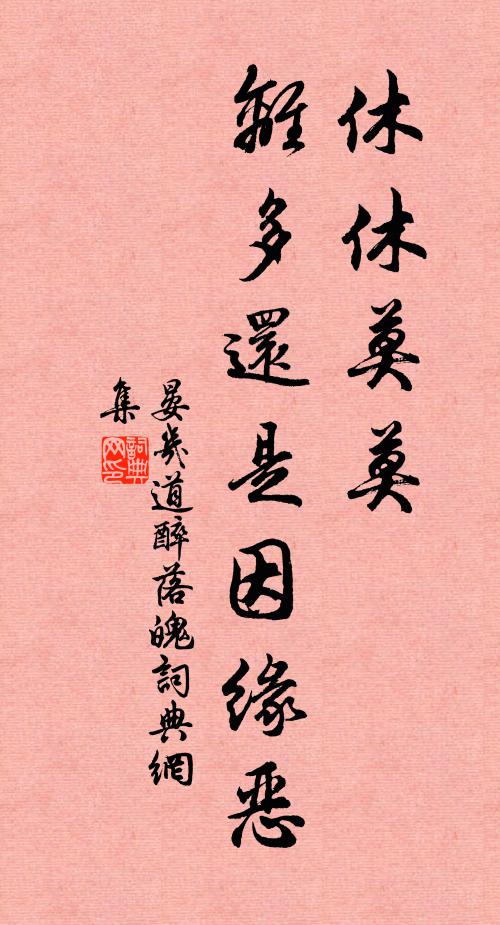 休休莫莫
離多還是因緣惡
晏幾道醉落魄詞典網
集
詞典網印